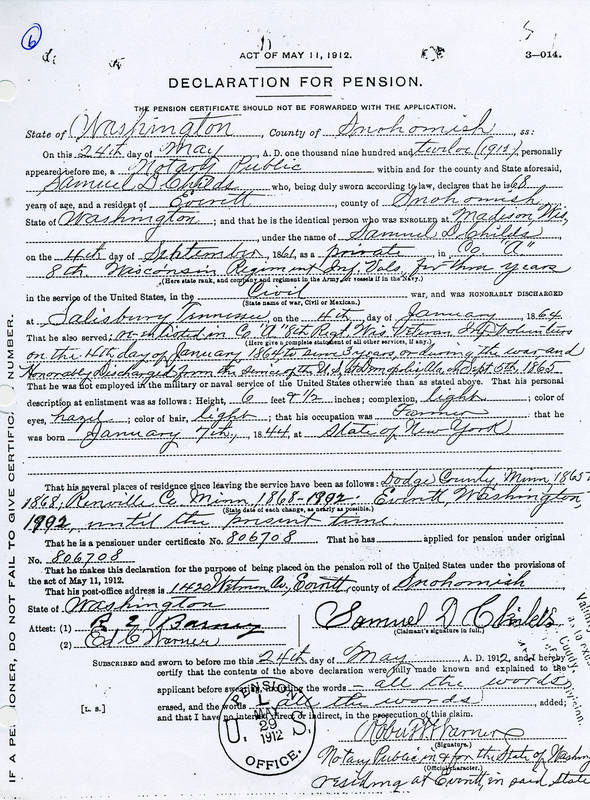 6
ACT OF MAY 11, 1912.
3—014.
DECLARATION FOR PENSION.
THE PENSION CERTIFICATE SHOULD NOT BE FORWARDED WITH THE APPLICATION.
State of Washington, County of Snohomish, ss:
On this 24th day of May, A. D. one thousand nine hundred and twelve (1912), personally
appeared before me, a Notary Public within and for the county and State aforesaid,
Samuel D Childs who, being duly sworn according to law, declares that he is 68
years of age, and a resident of Everett, county of Snohomish,
State of Washington; and that he is the identical person who was ENROLLED at Madison, Wis,
under the name of Samuel D. Childs
on the 4th day of September, 1861, as a private, in Co "A"
8th Wisconsin Regiment Inf. Vols, for three years
(Here state rank, and company and regiment in the Army, or vessels if in the Navy.)
in the service of the United States, in the Civil war, and was HONORABLY DISCHARGED
(State name of war, Civil or Mexican.)
at Salisbury Tennessee, on the 4th day of January 1864
That he also served; re-enlisted in Co "A" 8th Regt. Wis. Veteran Inf. Volunteers
(Here give a complete statement of all other services, if any.)
on the 4th day of January 1864 to serve 3 years, or during the war, and
Honorably Discharged from the service of the U.S. at Sept. 5th, 1865
That he was not employed in the military or naval service of the United States otherwise than as stated above. That his personal
description at enlistment was as follows: Height, 6 feet 1/2 inches; complexion, light; color of
eyes, hazel; color of hair, light; that his occupation was Farmer that he
was born January 7th, 1844, at State of New York
That his several places of residence since leaving the service have been as follows: Dodge County, Minn, 1865-
1868, Renville Co. Minn, 1868-1892. Everett, Washington,
(State date of each change, as nearly as possible.)
1892, until the present time.
That he is a pensioner under certificate No. 806708 That he has applied for pension under original
No. 806708
That he makes this declaration for the purpose of being placed on the pension roll of the United States under the provisions of
the act of May 11, 1912.
That his post-office address is 1420 Wetmore Av., Everett, county of Snohomish
State of Washington
Attest: (1) R E Barney
Samuel D Childs
(Claimant's signature in full.)
(2) Ed C Warner
SUBSCRIBED and sworn to before me this 24th day of May, A. D. 1912, and I hereby
certify that the contents of the above declaration were fully made known and explained to the
applicant before swearing, including the words all the words
erased, and the words all the words, added;
[L. S.]
and that I have no interest, direct or indirect, in the prosecution of this claim.
PENSION
MAY
29
1912
U. S.
OFFICE.
Robert F Warner
(Signature.)
Notary Public in & for the State of Washing
(Official character.)
residing at Everett, in said State
IF A PENSIONER, DO NOT FAIL TO GIVE CERTIFICATE NUMBER.